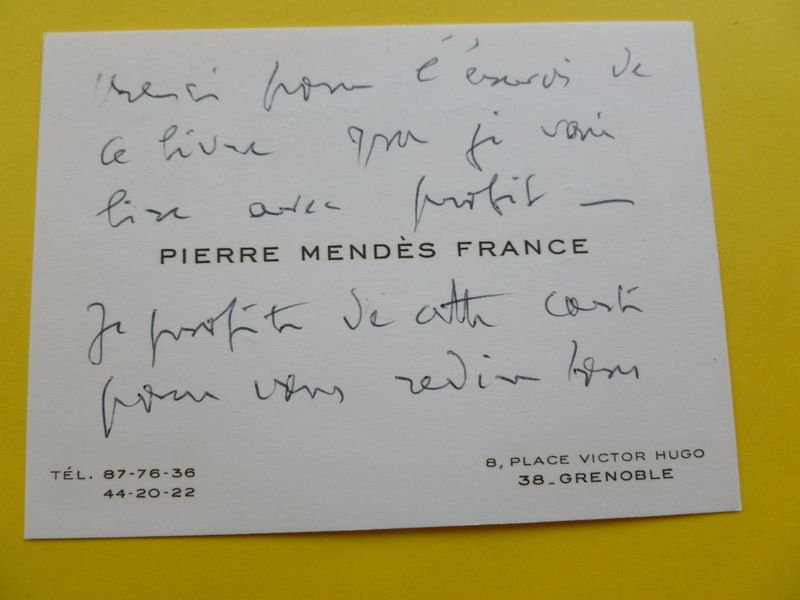 merci pour l'envoi de
ce livre que je vais
lire avec profit —
PIERRE MENDÈS FRANCE
Je profite de cette carte
pour vous redire tous
TÉL. 87-76-36
44-20-22
8, PLACE VICTOR HUGO
38_GRENOBLE